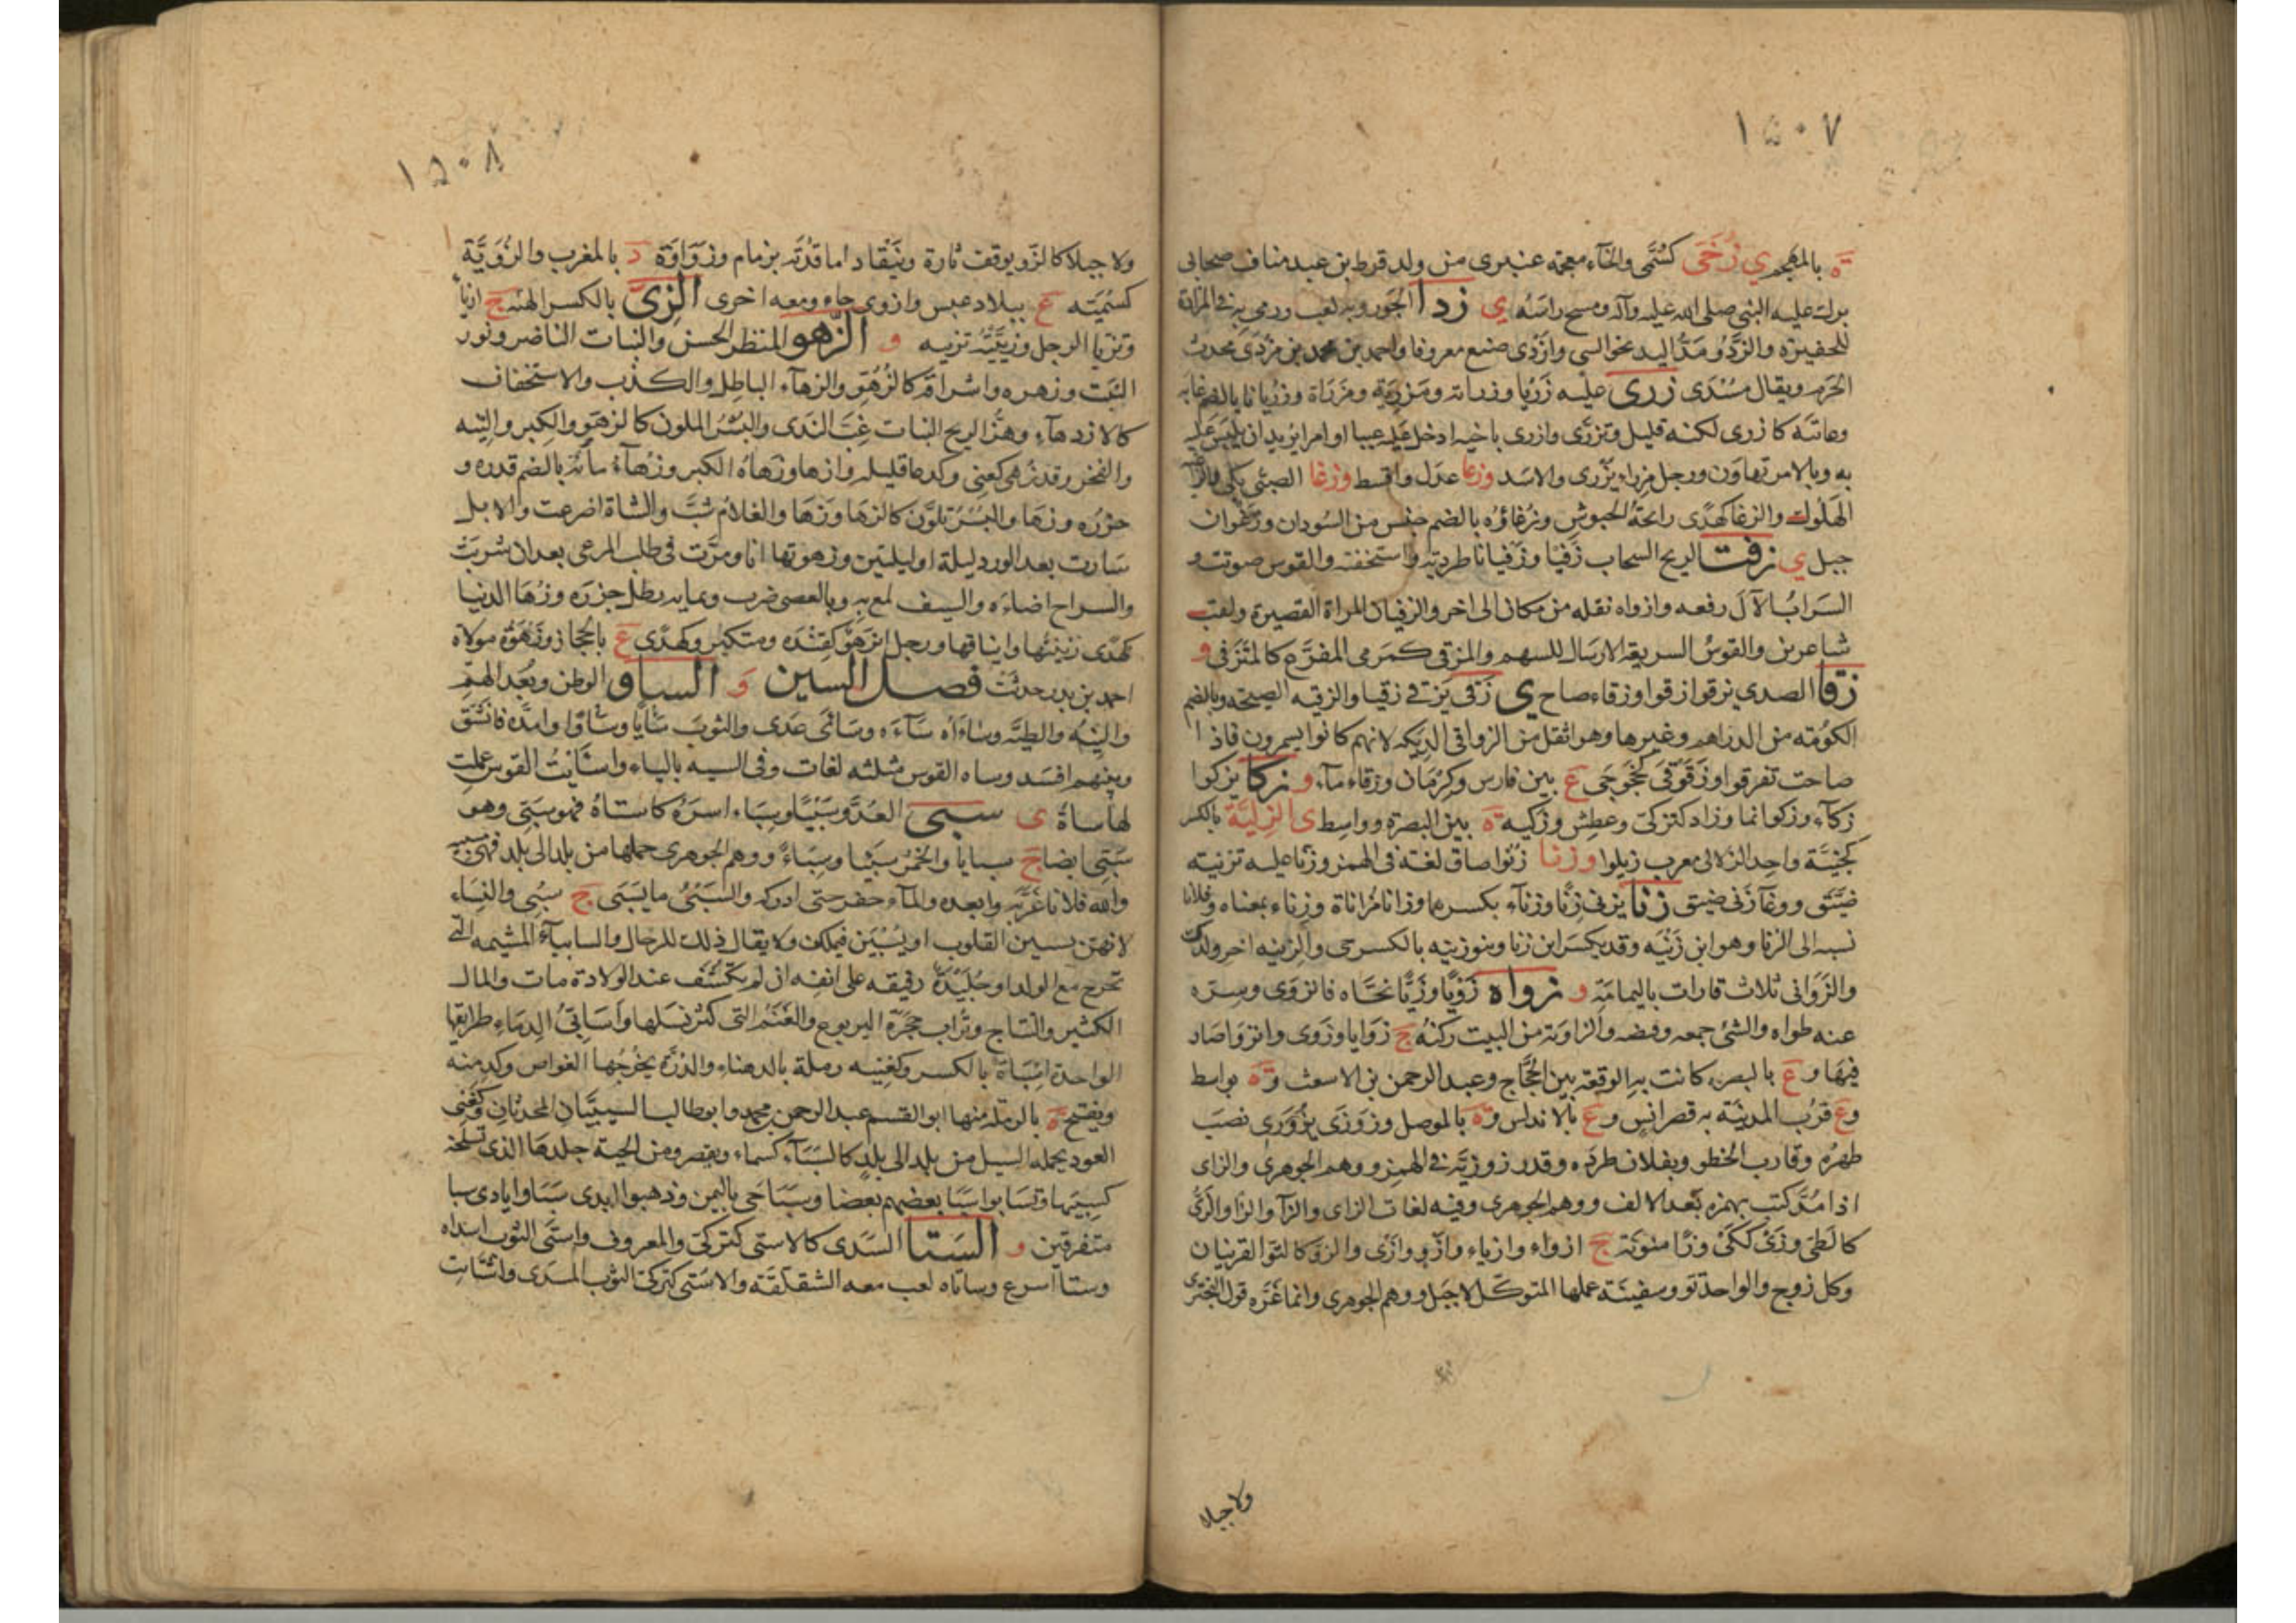 ١٥٠٧
ة بالمهجم ي زخى كسمى والخاء معجمة عنبرى من ولد قرط بن عبد مناف صحابى
برك عليه النبى صلى الله عليه وآله ومسح راسه ي زدا الجوز وبه لعب ورمى به فى المزداة
للحفيرة والزدو مد اليد نحو الشى وازدى صنع معروفا واحمد بن محمد بن مزدى محدث
الحرم ويقال مسدى زرى عليه زريا وزراية ومزرية ومزراة وزريانا بالضم عابه
وعاتبه كازرى لكنه قليل وتزرى وازرى باخيه ادخل عليه عيبا او امرا يريد ان يلبس عليه
به وبالامر تهاون ورجل مزراء يزرى والاسد وزعا عدل واقسط وزغا الصبى بكى
الهلوك والزغا كهدى رايحة الحبوش وزغاؤه بالضم جنس من السودان وزغوان
جبل ي زفت الريح السحاب زفيا وزفيانا طردته واستخفته والقوس صوتت و
السراب الآل رفعه وازواه نقله من مكان الى اخر والزفيان المراة القصيرة ولقب
شاعرين والقوس السريعة الارسال للسهم والمزفى كمرمى المفزع كالمتزفى و
زقا الصدى يزقوا زقوا وزقاء صاح ي زقى يزقى زقيا والزقيه الصيحة وبالضم
الكومة من الدراهم وغيرها وهو اثقل من الزواقى الديكه لانهم كانوا يسمرون فاذا
صاحت تفرقوا وزقوقى كخجوجى ع بين فارس وكرمان وزقاء ماء و زكا يزكوا
زكاء وزكوا نما وزاد كتزكى وعطش وزكيه ة بين البصرة وواسط ى الزلية بالكسر
كجنية واحد الزلالى معرب زيلوا وزنا زنوا ضاق لغة فى الهمز وزنا عليه تزنيته
ضيق ووعآ زنى ضيق زنا يزنى زنا وزناء بكسرهما وزانا مزاناة وزناء بمعناه وفلانا
نسبه الى الزنا وهو ابن زنيه وقد يكسر ابن زنا وبنو زنيه بالكسر حى والزنيه اخر ولدك
والزوانى ثلاث قارات باليمامة و زواه زويا وزيا نحاه فانزوى وسره
عنه طواه والشئ جمعه وقبضه والزاوية من البيت ركنه ج زوايا وزوى وانزوا صار
فيها وع بالبصره كانت به الوقعة بين الحجاج وعبد الرحمن بن الاسعث وة بواسط
وع قرب المدينة به قصر انس وع بالاندلس وة بالموصل وزوزى يزوزى نصب
ظهره وقارب الخطو وبفلان طرده وقدر زوزيه فى الهمز ووهم الجوهرى والزاى
اذا مد كتب بهمزه بعد الالف ووهم الجوهرى وفيه لغات الزاى والزآ والزا والزى
كالطى وزى ككى وزا منونة ج ازواء وازياء وازو وازى والزو كالتو القرينان
وكل زوج والواحد تو وسفينة عملها المتوكل لا جبل ووهم الجوهرى وانما غره قول البحترى
ولا جبلا
١٥٠٨
ولا جبلا كالزو يوقف تارة وينقاد اما قدته بزمام وزواوة د بالمغرب والزوية
كسمية ع ببلاد عبس وازوى جاء ومعه اخرى الزى بالكسر الهئة ج ازياء
وتزيا الرجل وزييته تزيية و الزهو المنظر الحسن والنبات الناضر ونور
النبت وزهره واشراقه كالزهو والزهاء الباطل والكذب والاستخفاف
كالازدهاء وهز الريح النبات غب الندى والبسر الملون كالزهو والكبر والتيه
والفخر وقد زهى كعنى وكدعا قليله وازها وزهاه الكبر وزهاء مائة بالضم قدره و
حزره وزها والبسر تلون كازها وزها والغلام شب والشاة اضرعت والابل
سارت بعد الورد ليلة او ليلتين وزهوتها انا ومرت فى طلب المرعى بعد ان شربت
والسراج اضاءه والسيف لمع به وبالعصى ضرب وبمايه رطل حزره وزها الدنيا
كهدى زينتها وايناقها ورجل انزهو كقنده ومتكبر وكهدى ع بالحجاز وزهوة مولاة
احمد بن بدر حدثت فصل السين و الساو الوطن وبعد الهم
والنيه والطية وساءاه ساءه وسائى عدى والثوب سايا وساوا وامده فانشق
وبينهم افسد وساه القوس مثلثه لغات وفى السيه بالياء واسايت القوس عملت
لها ساة ى سبى العدو سبيا وسباء اسره كاستباه فهو سبى وهو
سبى ايضا ج سبايا والخمر سبيا وسباء ووهم الجوهرى حملها من بلد الى بلد فهى سبيه
والله فلانا غربه وابعده والماء حفر حتى ادركه والسبى ما يسبى ج سبى والنساء
لانهن يسبين القلوب او يسبين فيملكن ولا يقال ذلك للرجال والسابياء المشيمه التى
تخرج مع الولد او جليدة رقيقه على انفه ان لم تكشف عند الولادة مات والمال
الكثير والنتاج وتراب حجرة اليربوع والغنم التى كثر نسلها واسابى الدماء طرايقها
الواحدة اسباة بالكسر وكغنيه رملة بالدهناء والدرة يخرجها الغواص وكدمنه
ويفتح ة بالرملة منها ابو القسم عبد الرحمن بن محمد وابوطالب السبييان المحدثان وكغنى
العود يحمله السيل من بلد الى بلد كالسباء كسماء ويقصر ومن الحية جلدها الذى تسلخه
كسبيها وتسابوا سبا بعضهم بعضا وسبا حى باليمن وذهبوا ايدى سبا وايادى سبا
متفرقين و الستا السدى كالاستى كتركى والمعروف واستى الثوب اسداه
وستا اسرع وساتاه لعب معه الشقلقة والاستى كتركى الثوب المسدى واستاتت